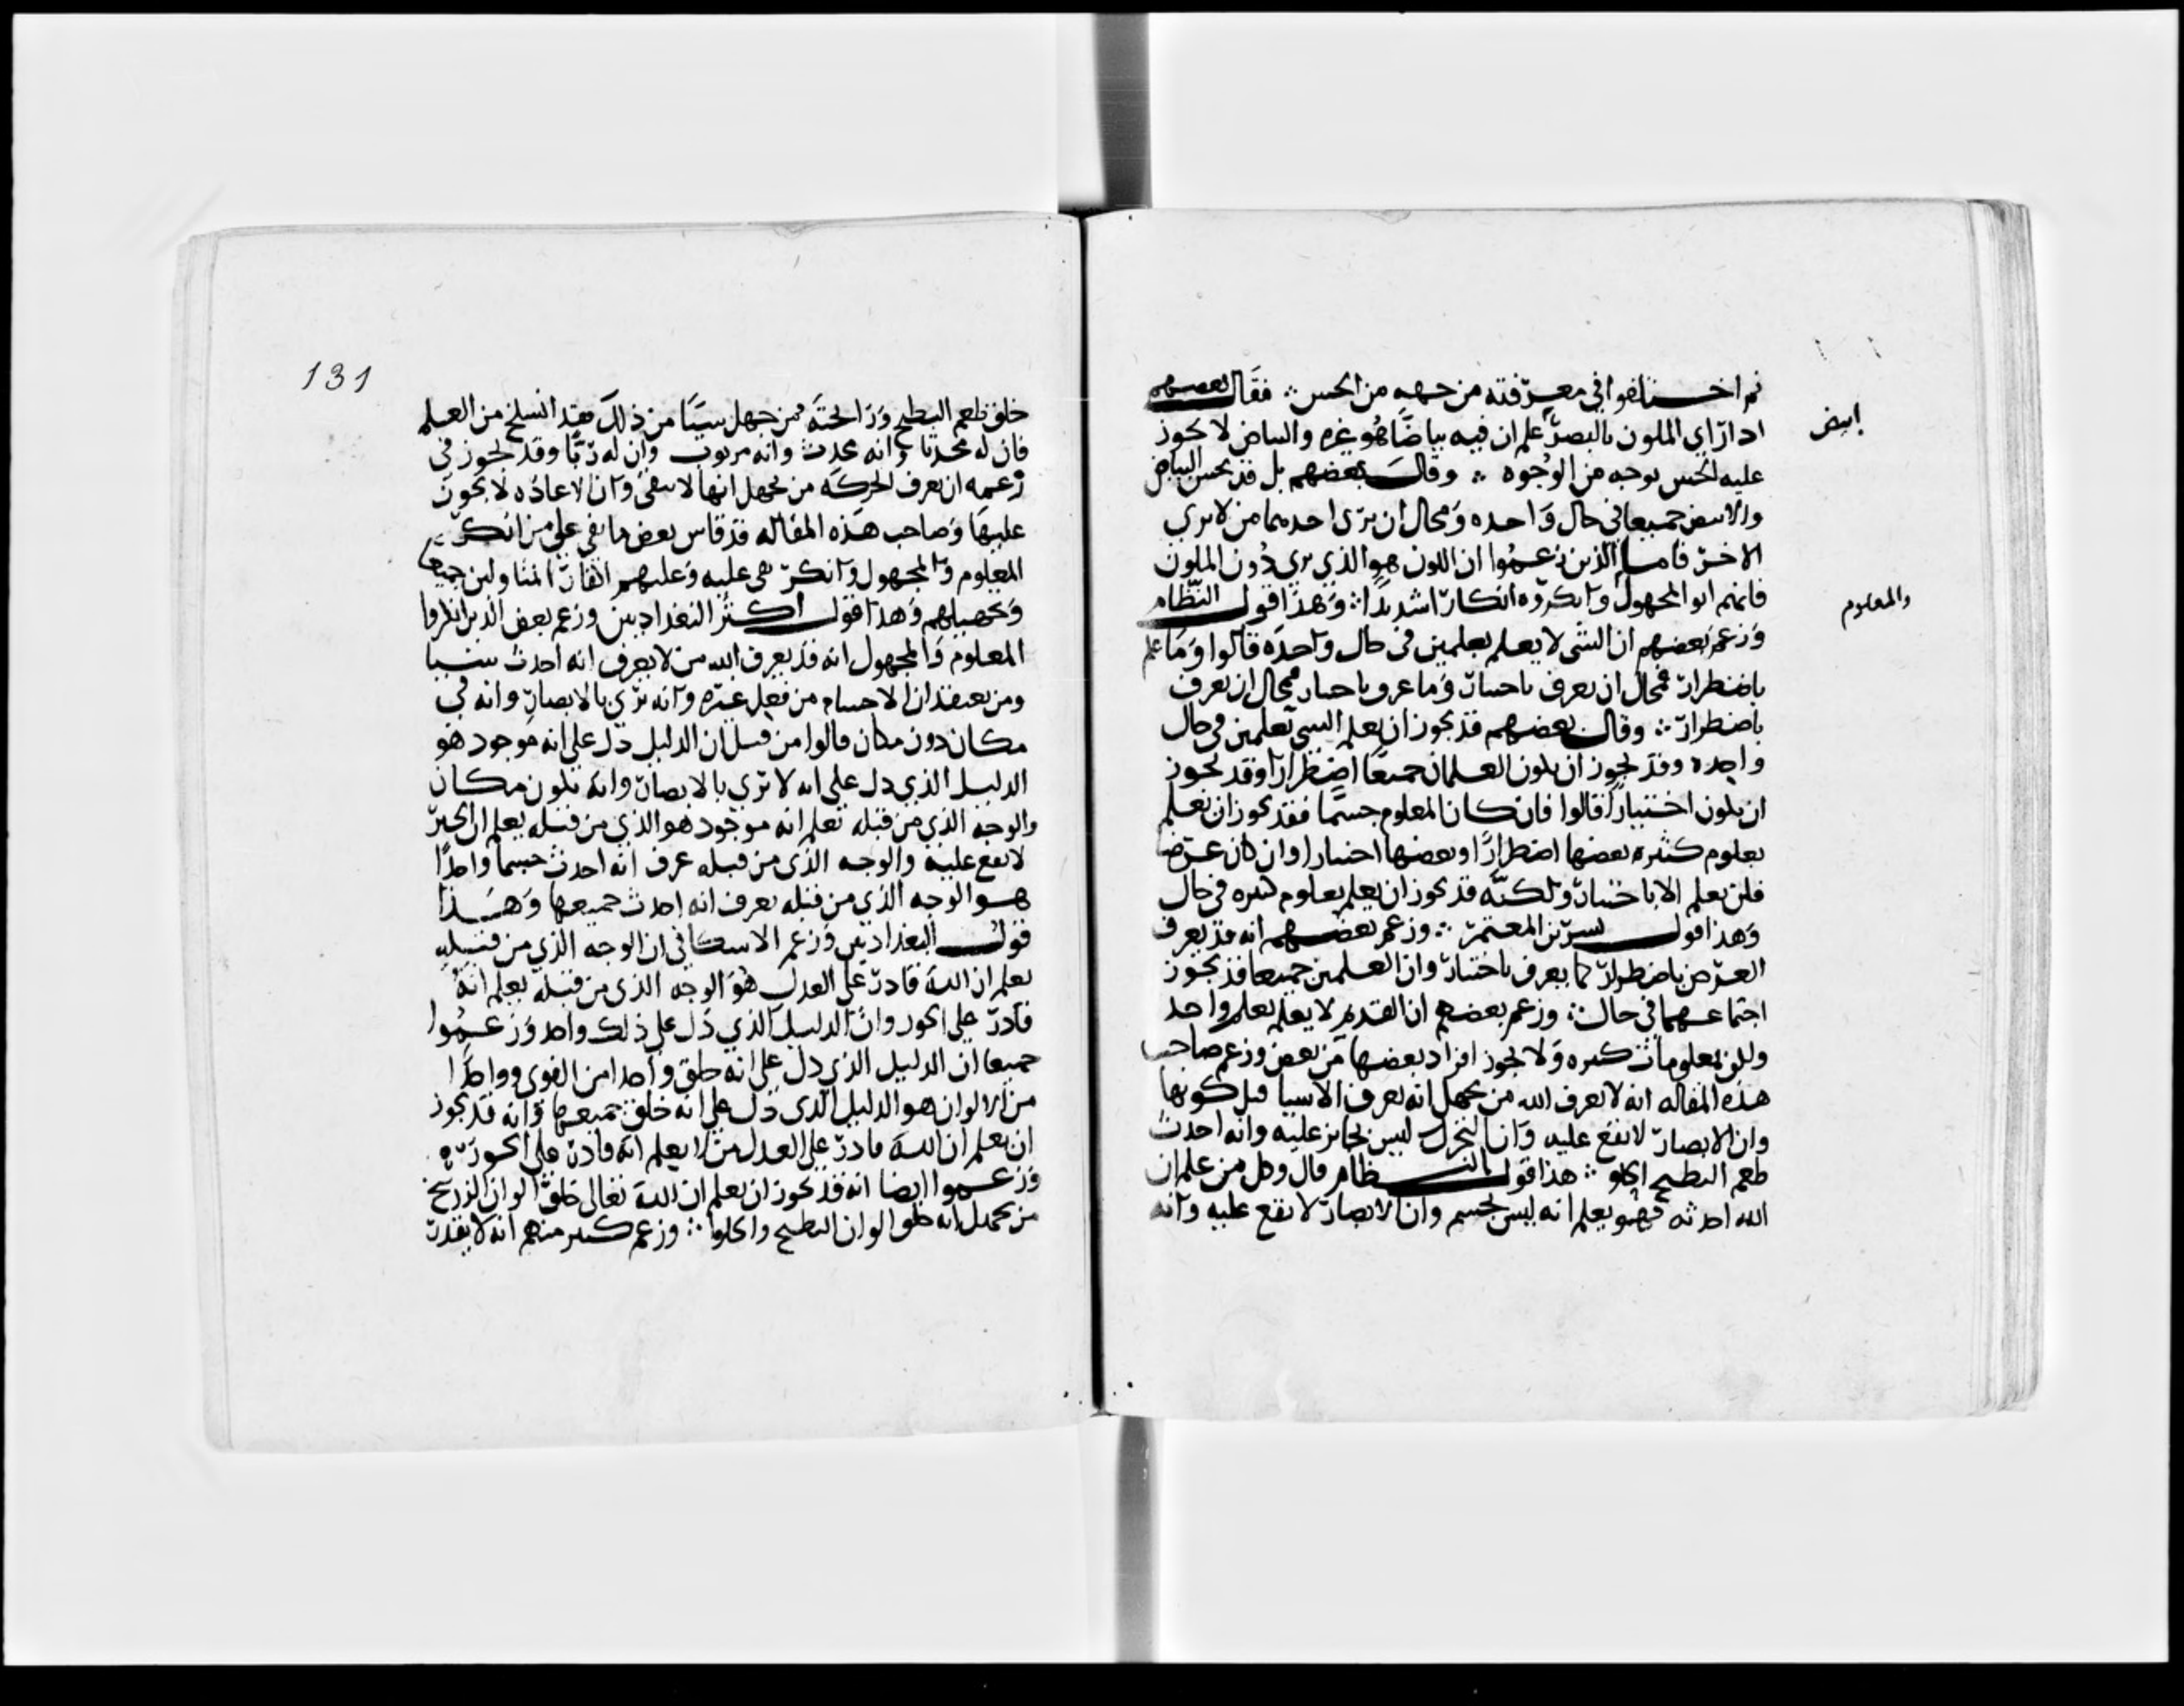 ثم اختلفوا في معرفته من جهه من الحس ∴ فقال بعضهم
ابيض
اذا راي الملون بالبصر علم ان فيه بياضا هو غيره والبياض لا يجوز
عليه الحس بوجه من الوجوه ∴ وقال بعضهم بل قد يحس البياض
والابيض جميعا في حال واحده ومحال ان يرى احدهما من لا يري
الاخر فاما الذين زعموا ان اللون هو الذي يري دون الملون
فانهم ابوا المجهول وانكروه انكارا شديدا ∴ وهذا قول النظام
والمعلوم
وزعم بعضهم ان الشي لا يعلم بعلمين في حال واحده قالوا وما علم
باضطرار فمحال ان يعرف باختيار وما عرف باختيار فمحال ان يعرف
باضطرار ∴ وقال بعضهم قد يجوز ان يعلم الشي بعلمين في حال
واحده وقد يجوز ان يكون العلمان جميعا اضطرارا وقد يجوز
ان يكون اختيارا قالوا فان كان المعلوم جسما فقد يجوز ان يعلم
بعلوم كثيره بعضها اضطرارا وبعضها اختيارا وان كان عرضا
فلن يعلم الا باختيار ولكنه قد يجوز ان يعلم بعلوم كثيره في حال
وهذا قول بشر بن المعتمر ∴ وزعم بعضهم انه قد يعرف
العرض باضطرار كما يعرف باختيار وان العلمين جميعا قد يجوز
اجتماعهما في حال ∴ وزعم بعضهم ان القديم لا يعلم بعلم واحد
ولكن بمعلومات كثيره ولا يجوز افراد بعضها من بعض وزعم صاحب
هذه المقاله انه لا يعرف الله من يجهل انه يعرف الاشيا قبل كونها
وان الابصار لا تقع عليه وان التحرك ليس بجائز عليه وانه احدث
طعم البطيخ الحلو ∴ هذا قول النظام قال وكل من علم ان
الله احدثه فهو يعلم انه ليس بجسم وان الابصار لا تقع عليه وانه
131
خلق طعم البطيخ ورائحته فمن جهل شيئا من ذلك فقد انسلخ من العلم
فان له محدثا وانه محدث وانه مربوب وان له ربا وقد يجوز في
زعمه ان يعرف الحركه من يجهل انها لا تبقى وان الاعاده لا تجوز
عليها وصاحب هذه المقاله قد قاس بعض ما بقي علي من انكر
المعلوم والمجهول وانكر بقي عليه وعليهم اكفار المتاولين جميعا
وتجهيلهم وهذا قول اكثر البغداديين وزعم بعض الذين انكروا
المعلوم والمجهول انه قد يعرف الله من لا يعرف انه احدث شيا
ومن يعتقد ان الاجسام من فعل غيره وانه يري بالابصار وانه في
مكان دون مكان قالوا من قبل ان الدليل دل على انه موجود هو
الدليل الذي دل على انه لا يري بالابصار وانه بكون مكان
والوجه الذي من قبله تعلم انه موجود هو الذي من قبله يعلم ان الحيز
لا يقع عليه والوجه الذي من قبله عرف انه احدث جسما واحدا
هو الوجه الذي من قبله يعرف انه احدث جميعها وهذا
قول البغداديين وزعم الاسكافي ان الوجه الذي من قبله
يعلم ان الله قادر على العدل هو الوجه الذي من قبله يعلم انه
قادر على الجور وان الدليل الذي دل على ذلك واحد وزعموا
جميعا ان الدليل الذي دل على انه خلق واحدا من القوى وواحدا
من الالوان هو الدليل الذي دل على انه خلق جميعها وانه قد يجوز
ان يعلم ان الله قادر على العدل من لا يعلم انه قادر على الجور
وزعموا ايضا انه قد يجوز ان يعلم ان الله تعالى خلق الوان الزرنيخ
من يجهل انه خلق الوان البطيخ والحلوا ∴ وزعم كثير منهم انه لا يقدر